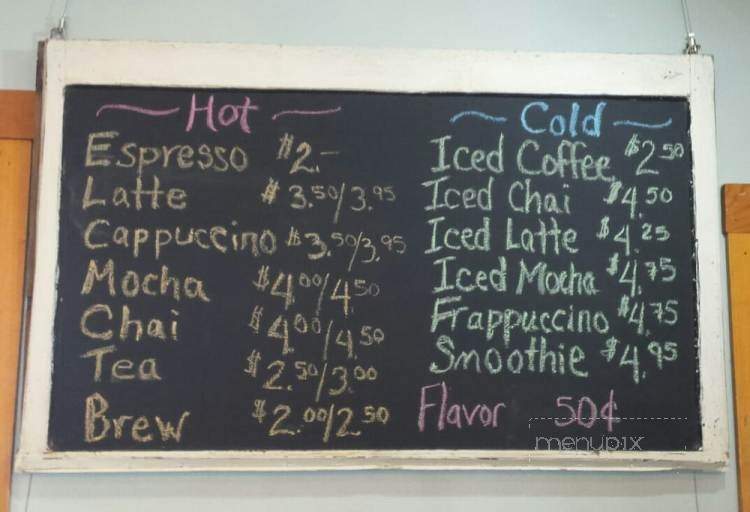 Hot
Espresso $2.-
Latte $3.50/3.95
Cappuccino $3.50/3.95
Mocha $4.00/4.50
Chai $4.00/4.50
Tea $2.50/3.00
Brew $2.00/2.50
Cold
Iced Coffee $2.50
Iced Chai $4.50
Iced Latte $4.25
Iced Mocha $4.75
Frappuccino $4.75
Smoothie $4.95
Flavor 50¢
menupix